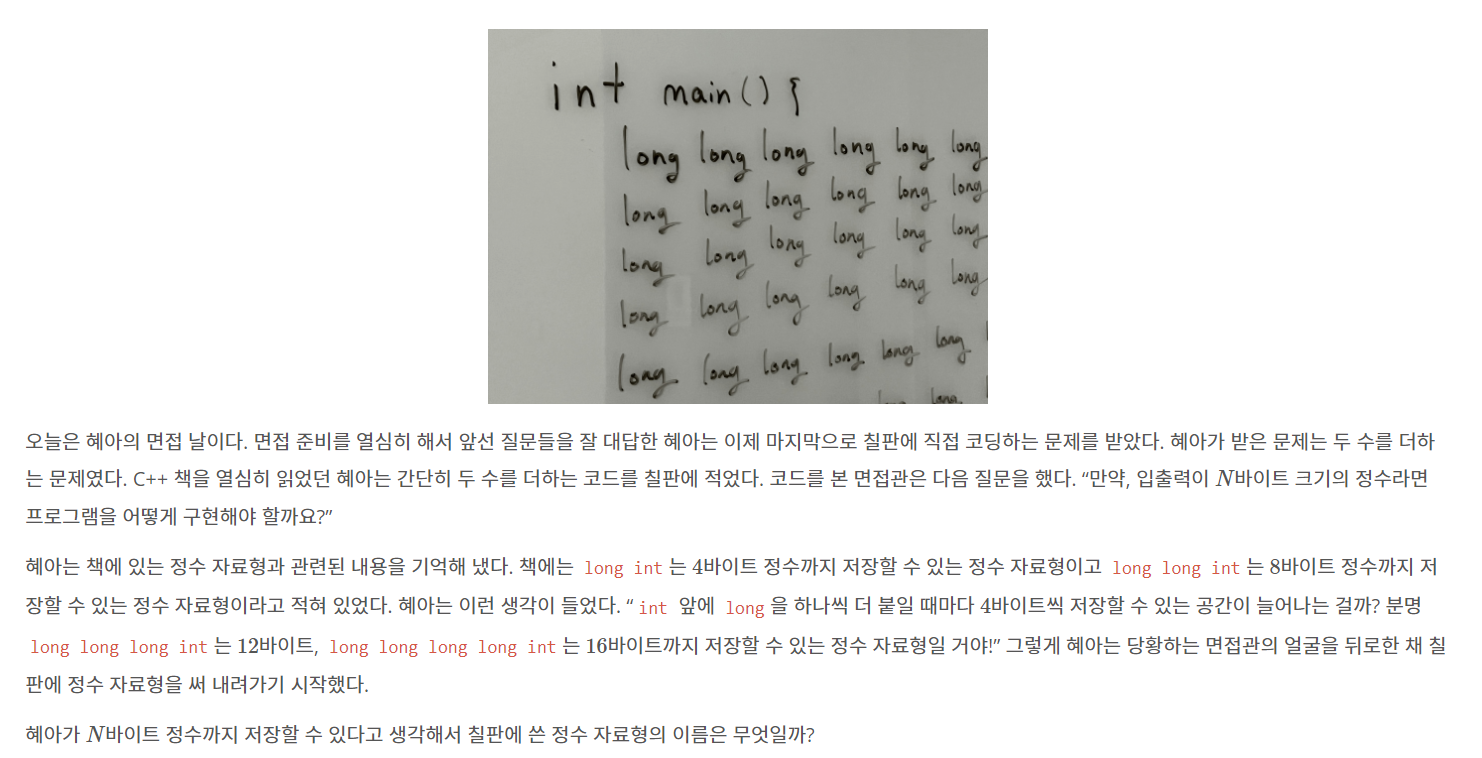 int main() {
long long long long long long
long long long long long long
long long long long long long
long long long long long long
long long long long long long
long long
오늘은 혜아의 면접 날이다. 면접 준비를 열심히 해서 앞선 질문들을 잘 대답한 혜아는 이제 마지막으로 칠판에 직접 코딩하는 문제를 받았다. 혜아가 받은 문제는 두 수를 더하
는 문제였다. C++ 책을 열심히 읽었던 혜아는 간단히 두 수를 더하는 코드를 칠판에 적었다. 코드를 본 면접관은 다음 질문을 했다. “만약, 입출력이 N바이트 크기의 정수라면
프로그램을 어떻게 구현해야 할까요?”
혜아는 책에 있는 정수 자료형과 관련된 내용을 기억해 냈다. 책에는 long int 는 4바이트 정수까지 저장할 수 있는 정수 자료형이고 long long int 는 8바이트 정수까지 저
장할 수 있는 정수 자료형이라고 적혀 있었다. 혜아는 이런 생각이 들었다. “ int 앞에 long 을 하나씩 더 붙일 때마다 4바이트씩 저장할 수 있는 공간이 늘어나는 걸까? 분명
long long long int 는 12바이트, long long long long int 는 16바이트까지 저장할 수 있는 정수 자료형일 거야!” 그렇게 혜아는 당황하는 면접관의 얼굴을 뒤로한 채 칠
판에 정수 자료형을 써 내려가기 시작했다.
혜아가 N바이트 정수까지 저장할 수 있다고 생각해서 칠판에 쓴 정수 자료형의 이름은 무엇일까?